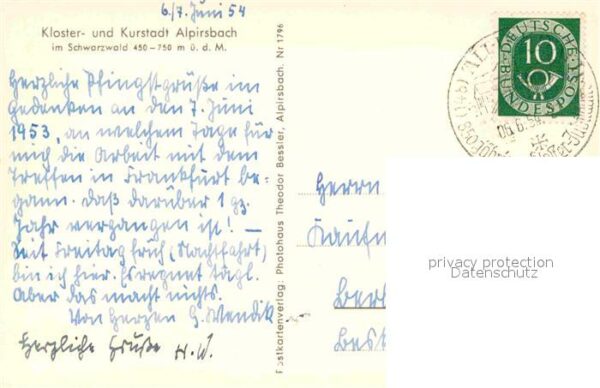 6./7. Juni 54
Kloster- und Kurstadt Alpirsbach
im Schwarzwald 450–750 m ü. d. M.
Herzliche Pfingstgrüße im
Gedenken an den 7. Juni
1953, an welchem Tage für
mich die Arbeit mit dem
Treffen in Frankfurt be-
gann. Daß darüber 1 gz.
Jahr vergangen ist! –
Seit Freitag früh (Nachtfahrt)
bin ich hier. Es regnet tägl.
Aber das macht nichts.
Von Herzen G. Wendik
Herzliche Grüße H. W.
Postkartenverlag: Photohaus Theodor Bessler, Alpirsbach. Nr 1796
DEUTSCHE
BUNDESPOST
10
06.6.54
Herrn
Kaufm
Ber
Best
privacy protection
Datenschutz